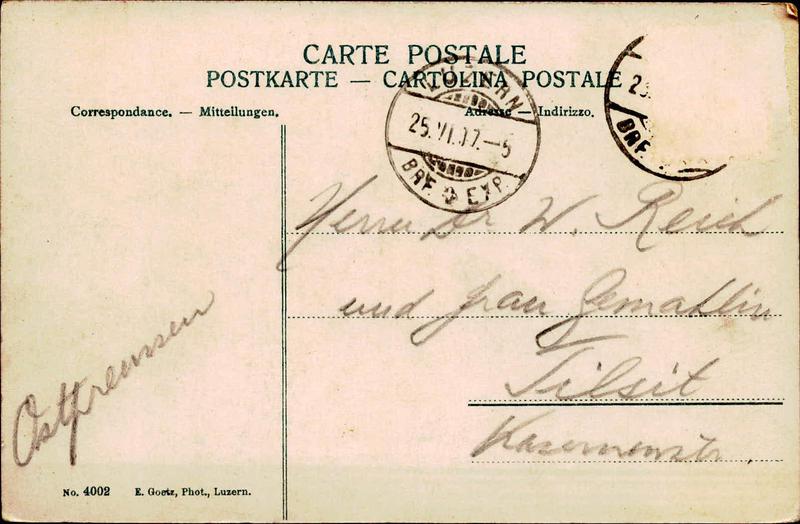 CARTE POSTALE
POSTKARTE — CARTOLINA POSTALE
Correspondance. — Mitteilungen.
Adresse — Indirizzo.
LUZERN
25.VI.07.—5
BRF. EXP.
25.
BRF.
Herrn Dr W. Reich
und Frau Gemahlin
Tilsit
Kasernenstr.
Ostpreussen
No. 4002 E. Goetz, Phot., Luzern.